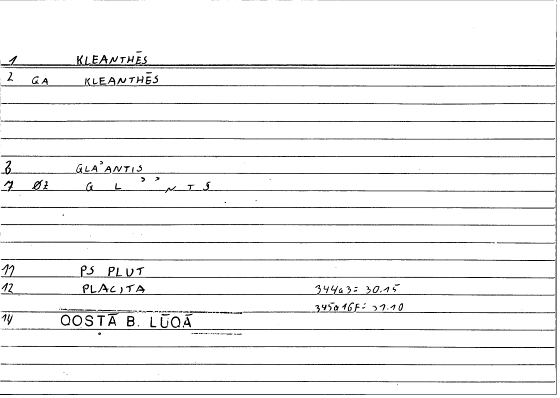 1 KLEANTHĒS
2 GA KLEANTHĒS
6 GLA'ANTIS
7 ØZ G L ' ' N T S
11 PS PLUT
12 PLACITA 344a3 = 30.15
345a16f = 31.10
14 QOSṬĀ B. LŪQĀ